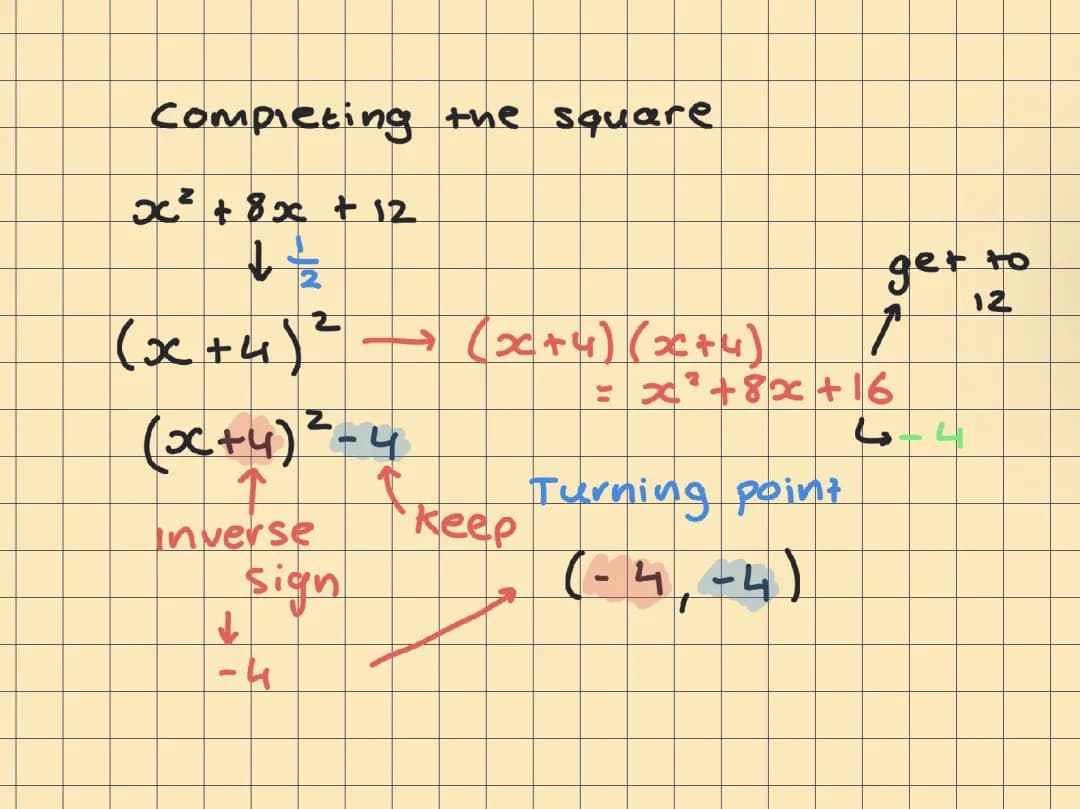 Completing the square
x² + 8x + 12
↓ 1/2
(x + 4)² → (x+4)(x+4)
= x² + 8x + 16
get to
12
↳ - 4
(x + 4)² - 4
inverse
sign
keep
- 4
Turning point
(- 4, - 4)